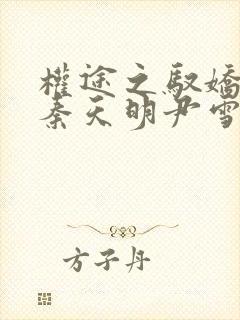 權途之馭嬌
秦天明尹雪
方子丹